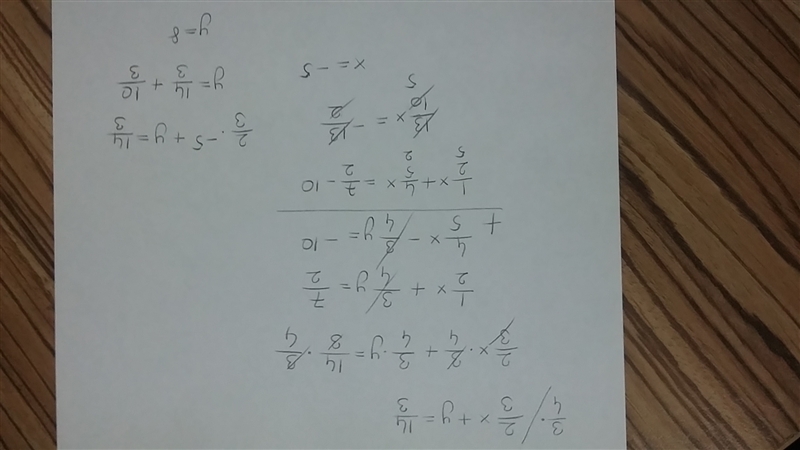 3/4 · / 2/3 x + y = 14/3
2/3 x · 3/4 + 3/4 · y = 14/3 · 3/4
1/2 x + 3/4 y = 7/2
4/5 x - 3/4 y = -10
+
1/2 x + 4/5 x = 7/2 - 10
5 2
13/10 x = - 13/2
5
x = -5
2/3 · -5 + y = 14/3
y = 14/3 + 10/3
y = 8